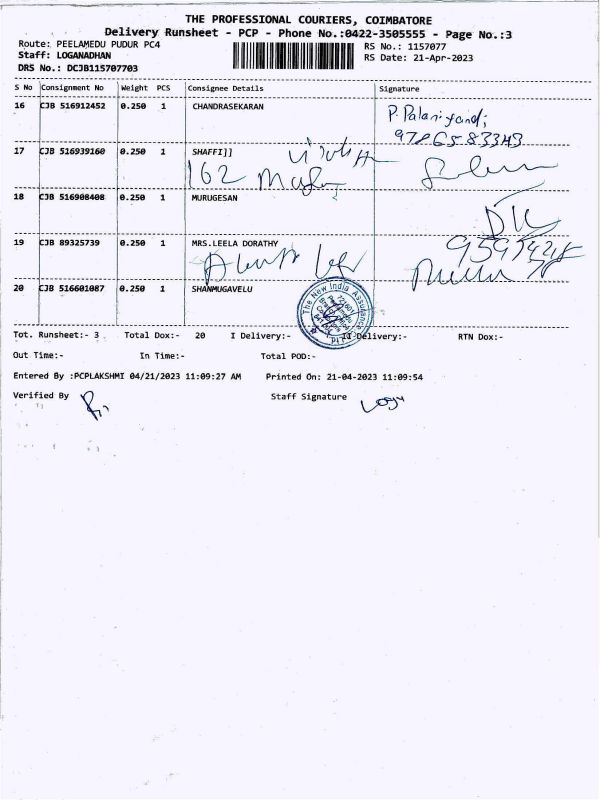 THE PROFESSIONAL COURIERS, COIMBATORE
Delivery Runsheet - PCP - Phone No.:0422-3505555 - Page No.:3
Route: PEELAMEDU PUDUR PC4
RS No.: 1157077
Staff: LOGANADHAN
RS Date: 21-Apr-2023
DRS No.: DCJB115707703
S No Consignment No Weight PCS Consignee Details Signature
16 CJB 516912452 0.250 1 CHANDRASEKARAN
P. Palaniyandi
17 CJB 516939160 0.250 1 SHAFFI]]
162
18 CJB 516908408 0.250 1 MURUGESAN
19 CJB 89325739 0.250 1 MRS.LEELA DORATHY
20 CJB 516601087 0.250 1 SHANMUGAVELU
The New India Assurance
Tot. Runsheet:- 3 Total Dox:- 20 I Delivery:- II Delivery:- RTN Dox:-
Out Time:- In Time:- Total POD:-
Entered By :PCPLAKSHMI 04/21/2023 11:09:27 AM Printed On: 21-04-2023 11:09:54
Verified By Staff Signature
Logu